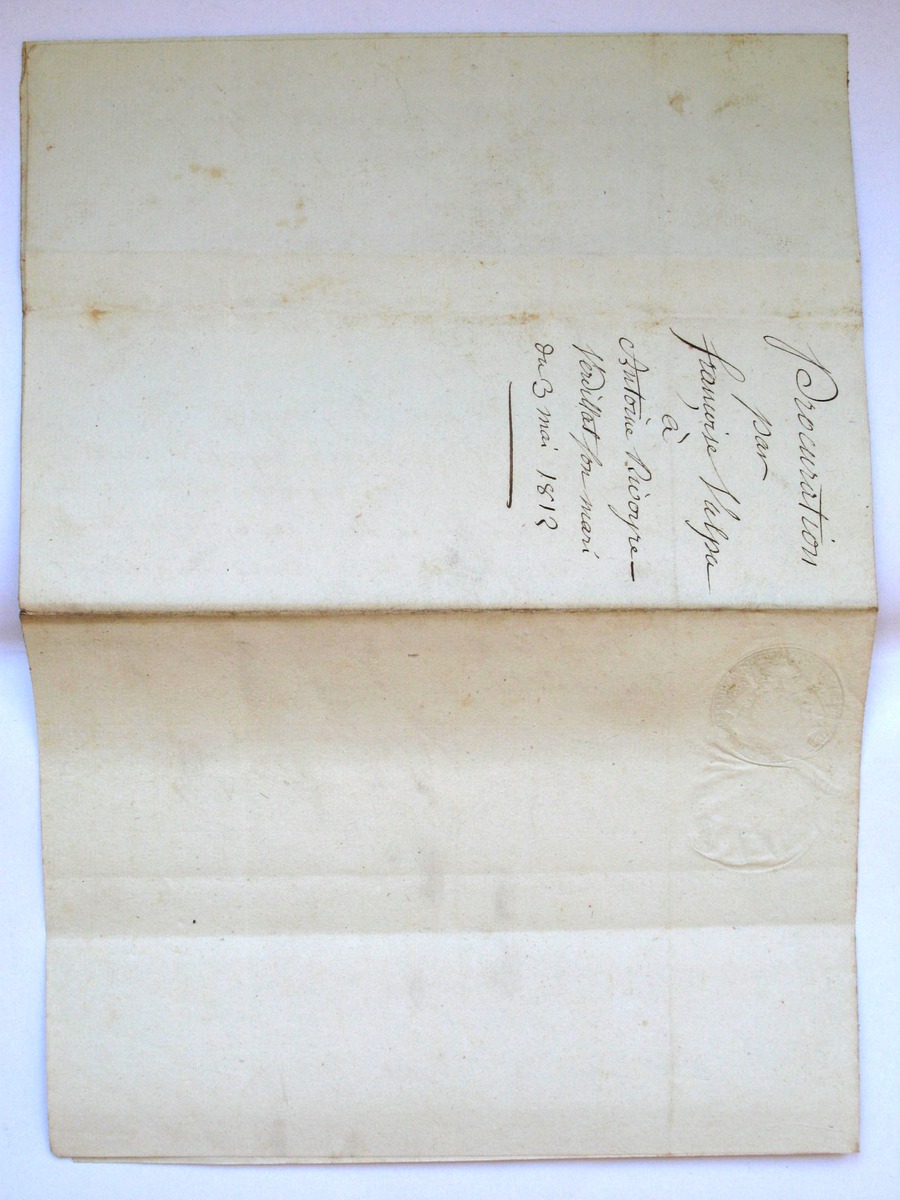 Procuration
par
françoise Valpa
à
Antoine Rivoyre
Verdillat son mari
du 3 mai 1812